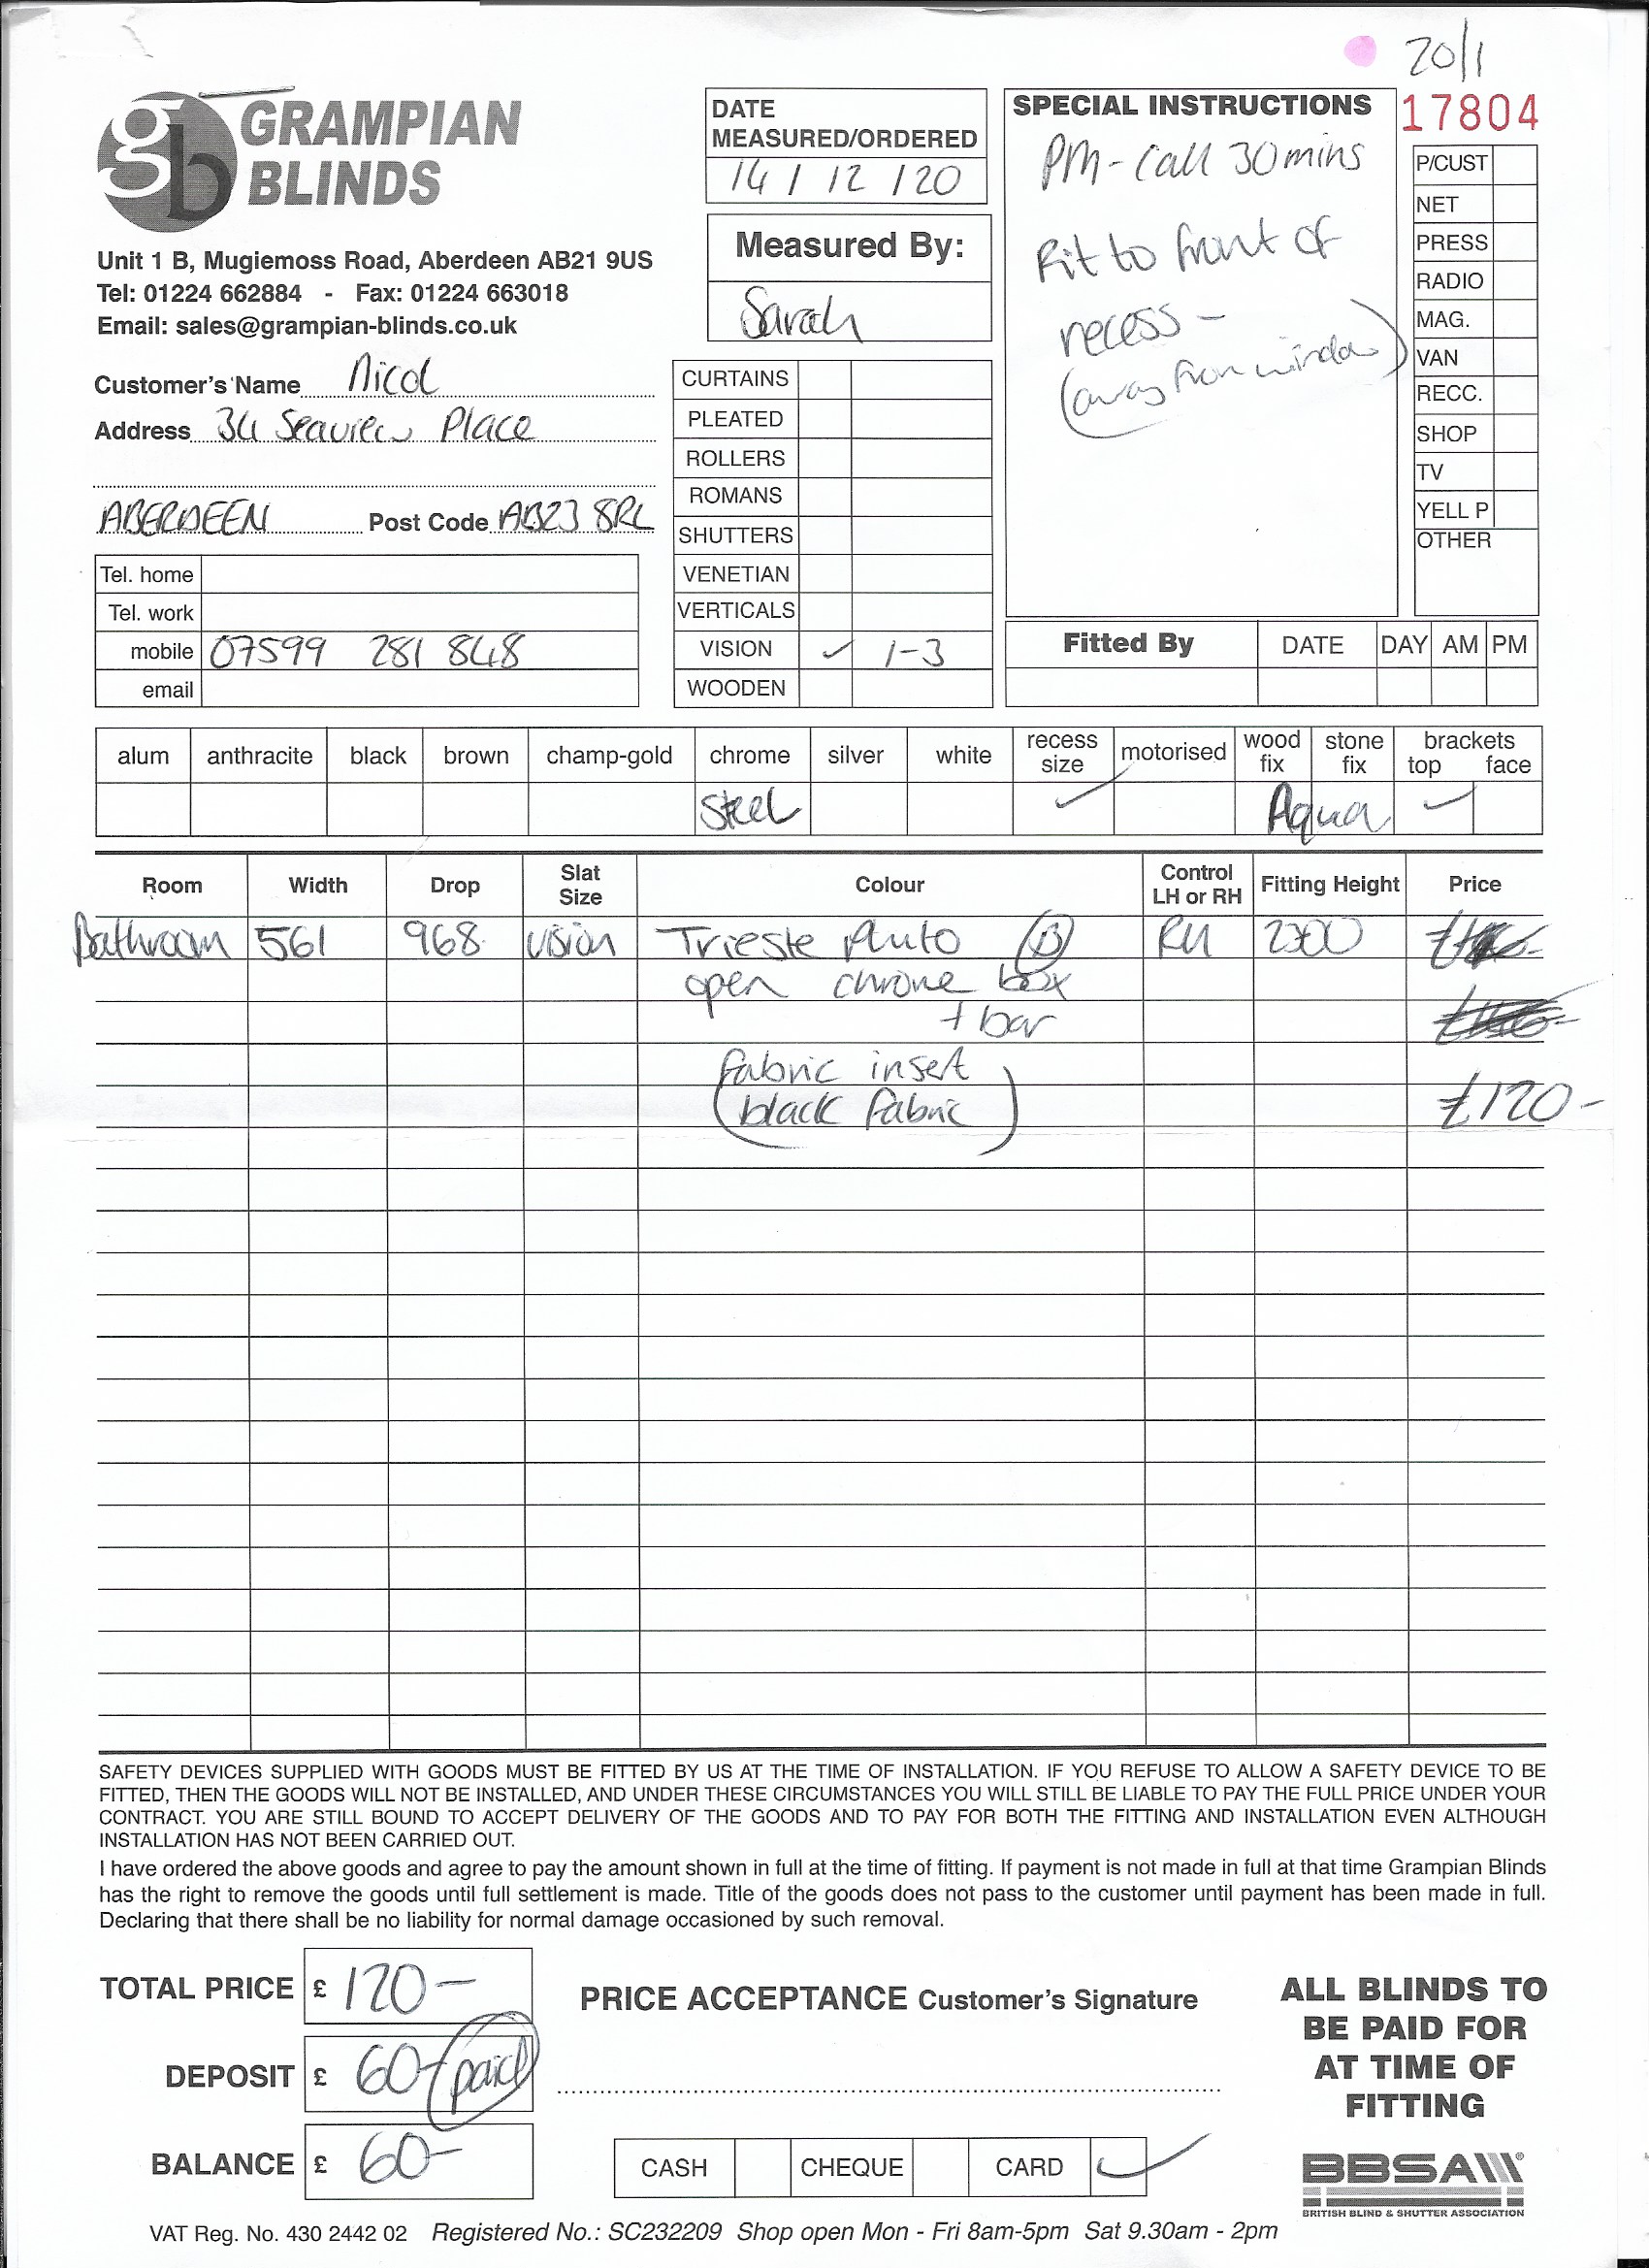 20/1
GRAMPIAN
BLINDS
gb
Unit 1 B, Mugiemoss Road, Aberdeen AB21 9US
Tel: 01224 662884 - Fax: 01224 663018
Email: sales@grampian-blinds.co.uk
DATE
MEASURED/ORDERED
14 / 12 / 20
Measured By:
Sarah
SPECIAL INSTRUCTIONS
PM - Call 30mins
Fit to front of
recess -
(away from window)
17804
P/CUST
NET
PRESS
RADIO
MAG.
VAN
RECC.
SHOP
TV
YELL P
OTHER
Customer's Name Nicol
Address 34 Seaview Place
ABERDEEN Post Code AB23 8RL
Tel. home
Tel. work
mobile 07599 281 848
email
CURTAINS
PLEATED
ROLLERS
ROMANS
SHUTTERS
VENETIAN
VERTICALS
VISION ✓ 1-3
WOODEN
Fitted By DATE DAY AM PM
alum anthracite black brown champ-gold chrome silver white recess size motorised wood fix stone fix brackets top face
Steel ✓ Aqua ✓
Room Width Drop Slat Size Colour Control LH or RH Fitting Height Price
Bathroom 561 968 vision Trieste Pluto (B) RH 2300
open chrome box
+ bar
Fabric insert
(black fabric) £120-
SAFETY DEVICES SUPPLIED WITH GOODS MUST BE FITTED BY US AT THE TIME OF INSTALLATION. IF YOU REFUSE TO ALLOW A SAFETY DEVICE TO BE
FITTED, THEN THE GOODS WILL NOT BE INSTALLED, AND UNDER THESE CIRCUMSTANCES YOU WILL STILL BE LIABLE TO PAY THE FULL PRICE UNDER YOUR
CONTRACT. YOU ARE STILL BOUND TO ACCEPT DELIVERY OF THE GOODS AND TO PAY FOR BOTH THE FITTING AND INSTALLATION EVEN ALTHOUGH
INSTALLATION HAS NOT BEEN CARRIED OUT.
I have ordered the above goods and agree to pay the amount shown in full at the time of fitting. If payment is not made in full at that time Grampian Blinds
has the right to remove the goods until full settlement is made. Title of the goods does not pass to the customer until payment has been made in full.
Declaring that there shall be no liability for normal damage occasioned by such removal.
TOTAL PRICE £ 120-
DEPOSIT £ 60- (paid)
BALANCE £ 60-
PRICE ACCEPTANCE Customer's Signature
CASH CHEQUE CARD ✓
ALL BLINDS TO
BE PAID FOR
AT TIME OF
FITTING
BBSA
BRITISH BLIND & SHUTTER ASSOCIATION
VAT Reg. No. 430 2442 02 Registered No.: SC232209 Shop open Mon - Fri 8am-5pm Sat 9.30am - 2pm